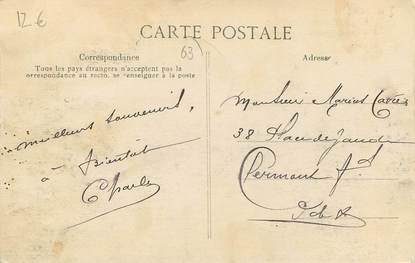 12 €
CARTE POSTALE
63
Correspondance
Tous les pays étrangers n'acceptent pas la
correspondance au recto, se renseigner à la poste
Adresse
meilleurs souvenirs,
à bientôt
Charles
Monsieur Marius
38 Place de Jaude
Clermont Fd
P de D